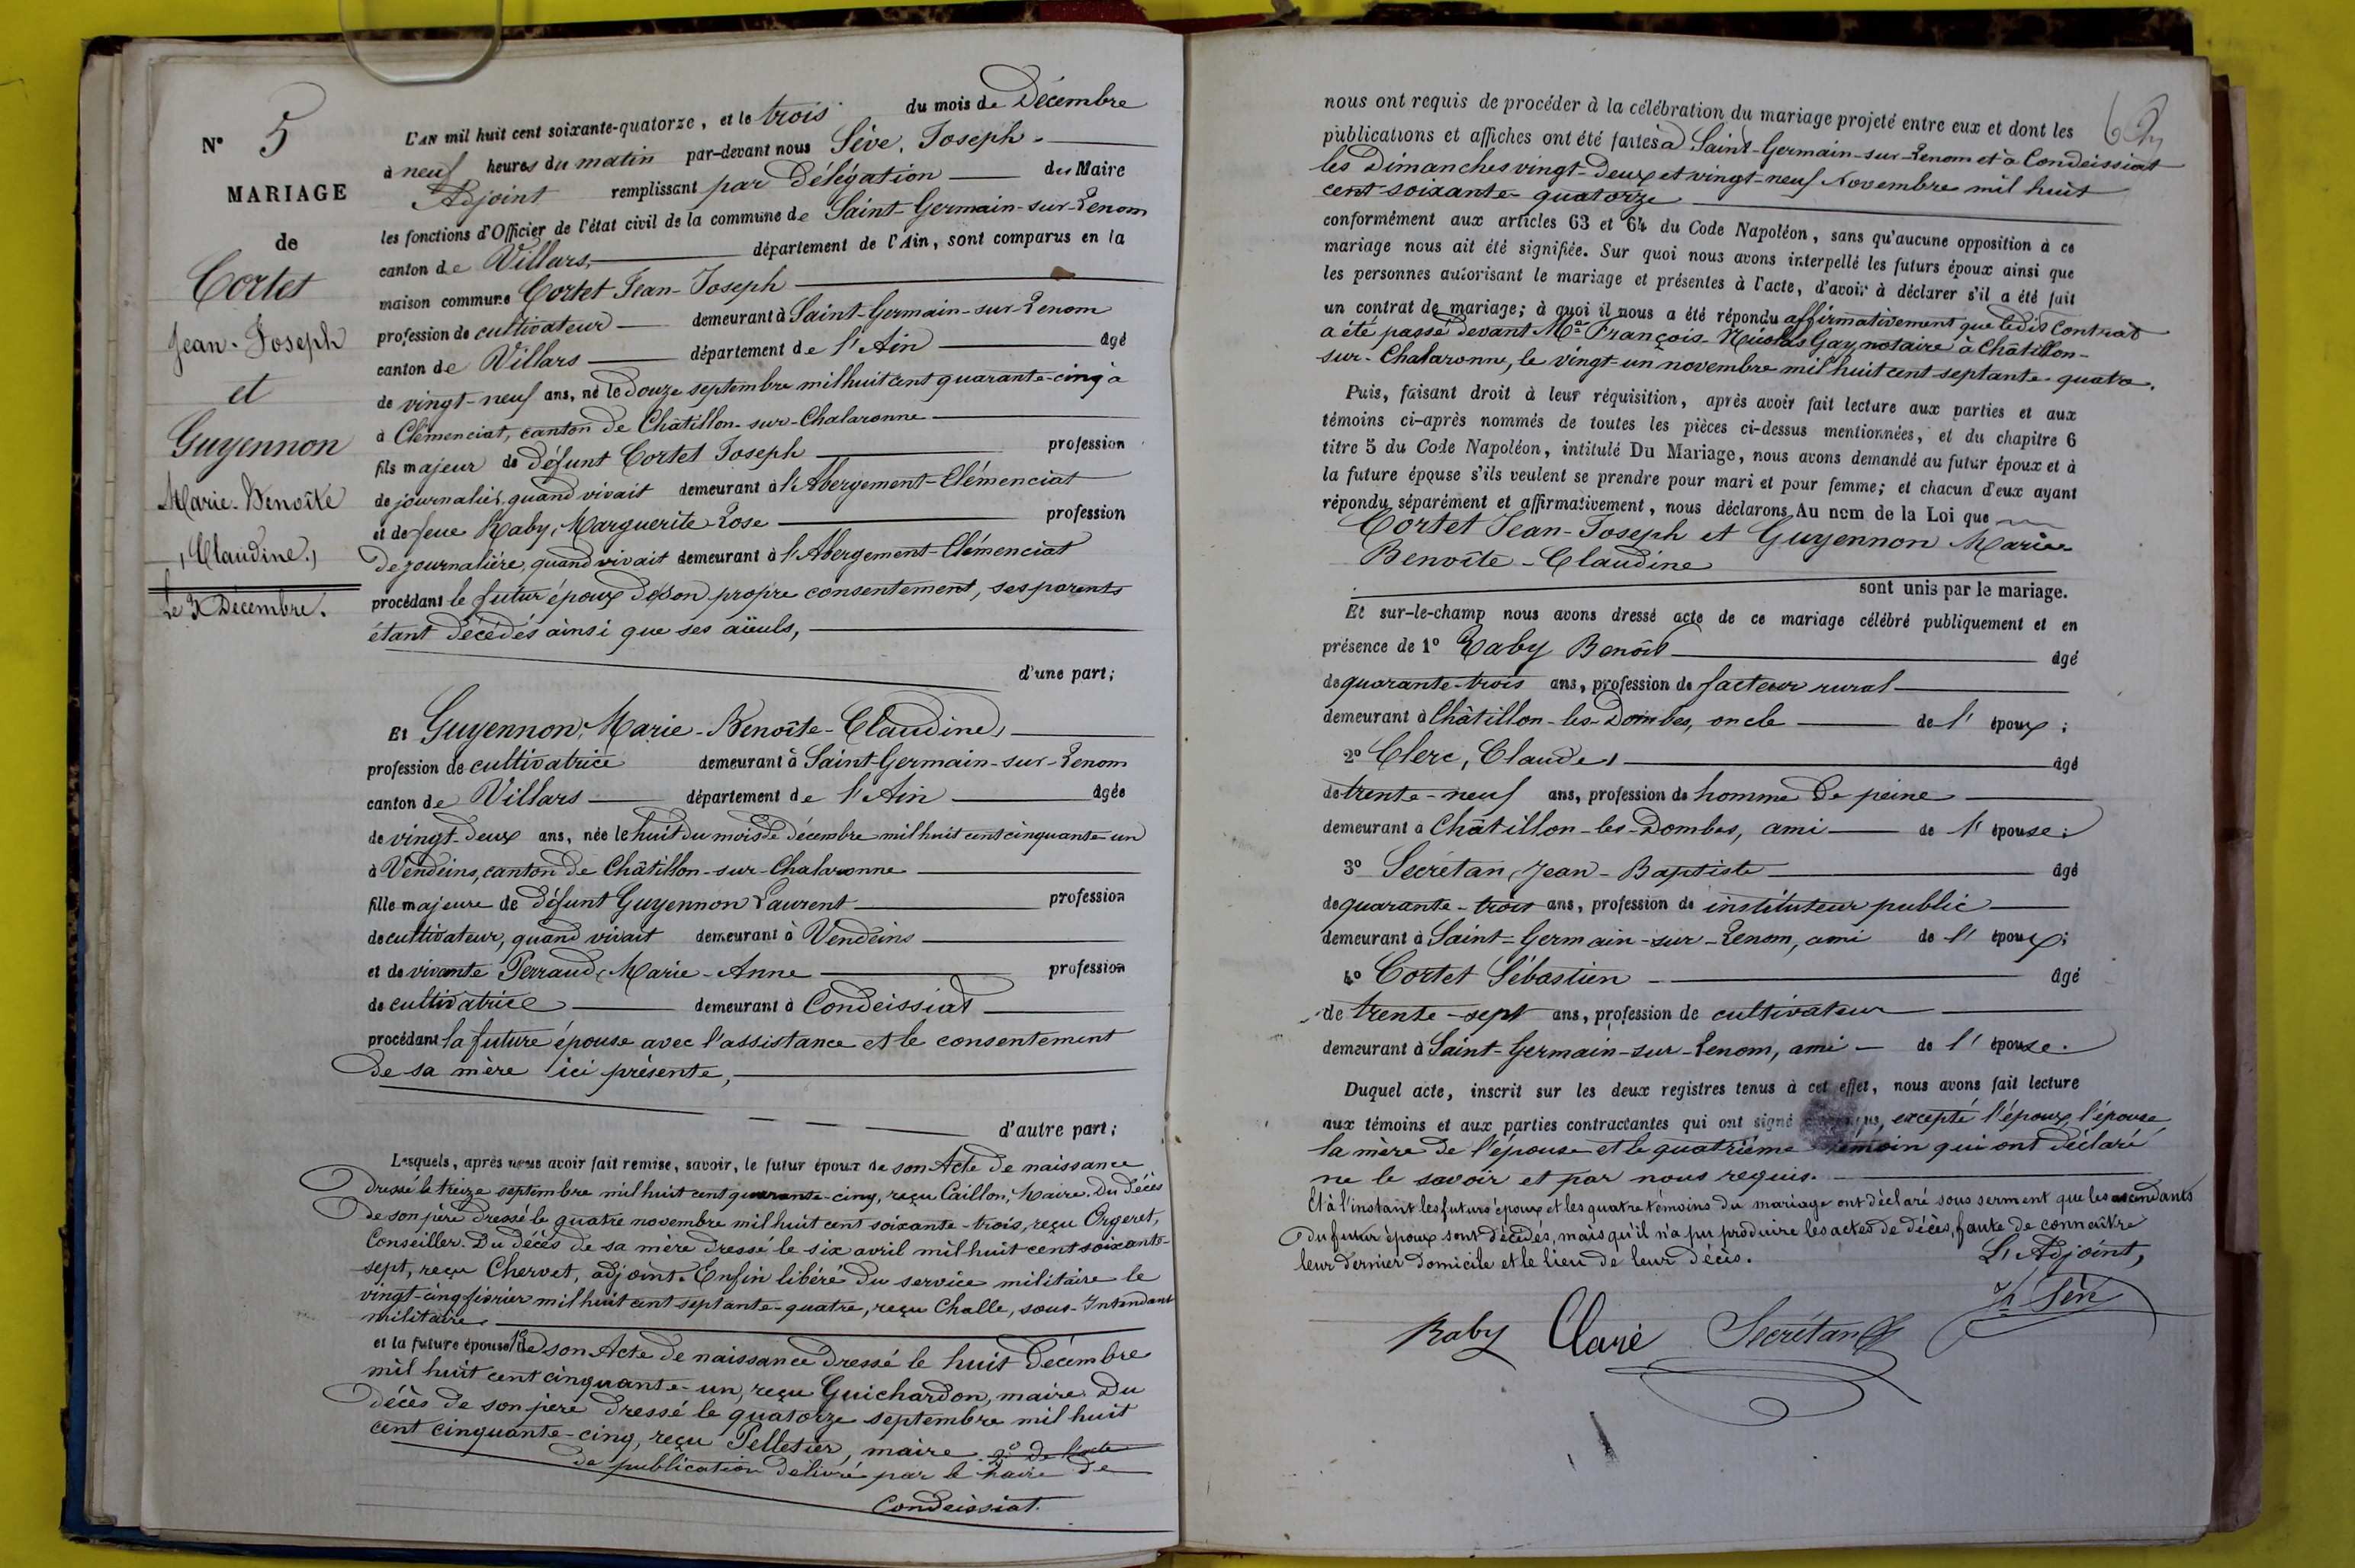 N° 5
MARIAGE
de
Cortet
Jean-Joseph
et
Guyennon
Marie-Benoîte
Claudine.
Le 3 Décembre.
L'AN mil huit cent soixante-quatorze, et le trois du mois de Décembre
à neuf heures du matin par-devant nous Sève, Joseph.
Adjoint remplissant par délégation du Maire
les fonctions d'Officier de l'état civil de la commune de Saint-Germain-sur-Renom
canton de Villars, département de l'Ain, sont comparus en la
maison commune Cortet Jean-Joseph
profession de cultivateur demeurant à Saint-Germain-sur-Renom
canton de Villars département de l'Ain âgé
de vingt-neuf ans, né le douze septembre mil huit cent quarante-cinq à
à Clémenciat, canton de Châtillon-sur-Chalaronne
fils majeur de défunt Cortet Joseph profession
de journalier, quand vivait demeurant à l'Abergement-Clémenciat
et de feue Raby, Marguerite-Rose profession
de journalière, quand vivait demeurant à l'Abergement-Clémenciat
procédant le futur époux de son propre consentement, ses parents
étant décédés ainsi que ses aïeuls,
d'une part;
Et Guyennon, Marie-Benoîte-Claudine,
profession de cultivatrice demeurant à Saint-Germain-sur-Renom
canton de Villars département de l'Ain âgée
de vingt-deux ans, née le huit du mois de décembre mil huit cent cinquante-un
à Vendeins, canton de Châtillon-sur-Chalaronne
fille majeure de défunt Guyennon Laurent profession
de cultivateur, quand vivait demeurant à Vendeins
et de vivante Perraud, Marie-Anne profession
de cultivatrice demeurant à Condeissiat
procédant la future épouse avec l'assistance et le consentement
de sa mère ici présente,
d'autre part;
Lesquels, après nous avoir fait remise, savoir, le futur époux de son Acte de naissance
dressé le treize septembre mil huit cent quarante-cinq, reçu Caillon, Maire. Du décès
de son père dressé le quatre novembre mil huit cent soixante-trois, reçu Orgeret,
Conseiller. Du décès de sa mère dressé le six avril mil huit cent soixante-
sept, reçu Chervet, adjoint. Enfin libéré du service militaire le
vingt-cinq février mil huit cent septante-quatre, reçu Challe, sous-Intendant
militaire.
et la future épouse 1° de son Acte de naissance dressé le huit décembre
mil huit cent cinquante-un, reçu Guichardon, maire. Du
décès de son père dressé le quatorze septembre mil huit
cent cinquante-cinq, reçu Pelletier, maire. 2° de l'acte
de publication délivré par le Maire de
Condeissiat.
nous ont requis de procéder à la célébration du mariage projeté entre eux et dont les
publications et affiches ont été faites à Saint-Germain-sur-Renom et à Condeissiat
les Dimanches vingt-deux et vingt-neuf Novembre mil huit
cent-soixante-quatorze
conformément aux articles 63 et 64 du Code Napoléon, sans qu'aucune opposition à ce
mariage nous ait été signifiée. Sur quoi nous avons interpellé les futurs époux ainsi que
les personnes autorisant le mariage et présentes à l'acte, d'avoir à déclarer s'il a été fait
un contrat de mariage; à quoi il nous a été répondu affirmativement que ledit Contrat
a été passé devant Me François-Nicolas Gay notaire à Châtillon-
sur-Chalaronne, le vingt-un novembre mil huit cent septante-quatre.
Puis, faisant droit à leur réquisition, après avoir fait lecture aux parties et aux
témoins ci-après nommés de toutes les pièces ci-dessus mentionnées, et du chapitre 6
titre 5 du Code Napoléon, intitulé Du Mariage, nous avons demandé au futur époux et à
la future épouse s'ils veulent se prendre pour mari et pour femme; et chacun d'eux ayant
répondu séparément et affirmativement, nous déclarons Au nom de la Loi que
Cortet Jean-Joseph et Guyennon Marie
Benoîte-Claudine
sont unis par le mariage.
Et sur-le-champ nous avons dressé acte de ce mariage célébré publiquement et en
présence de 1° Raby Benoît âgé
de quarante-trois ans, profession de facteur rural
demeurant à Châtillon-les-Dombes, oncle de l'époux;
2° Clerc, Claude, âgé
de trente-neuf ans, profession de homme de peine
demeurant à Châtillon-les-Dombes, ami de l'épouse;
3° Secrétan, Jean-Baptiste âgé
de quarante-trois ans, profession de instituteur public
demeurant à Saint-Germain-sur-Renom, ami de l'époux;
4° Cortet Sébastien âgé
de trente-sept ans, profession de cultivateur
demeurant à Saint-Germain-sur-Renom, ami de l'épouse.
Duquel acte, inscrit sur les deux registres tenus à cet effet, nous avons fait lecture
aux témoins et aux parties contractantes qui ont signé excepté l'époux, l'épouse
la mère de l'épouse et le quatrième témoin qui ont déclaré
ne le savoir et par nous requis.
Et à l'instant les futurs époux et les quatre témoins du mariage ont déclaré sous serment que les ascendants
du futur époux sont décédés, mais qu'il n'a pu produire les actes de décès, faute de connaître
leur dernier domicile et le lieu de leur décès.
L'Adjoint,
Raby Claré Secrétan Jh Sève